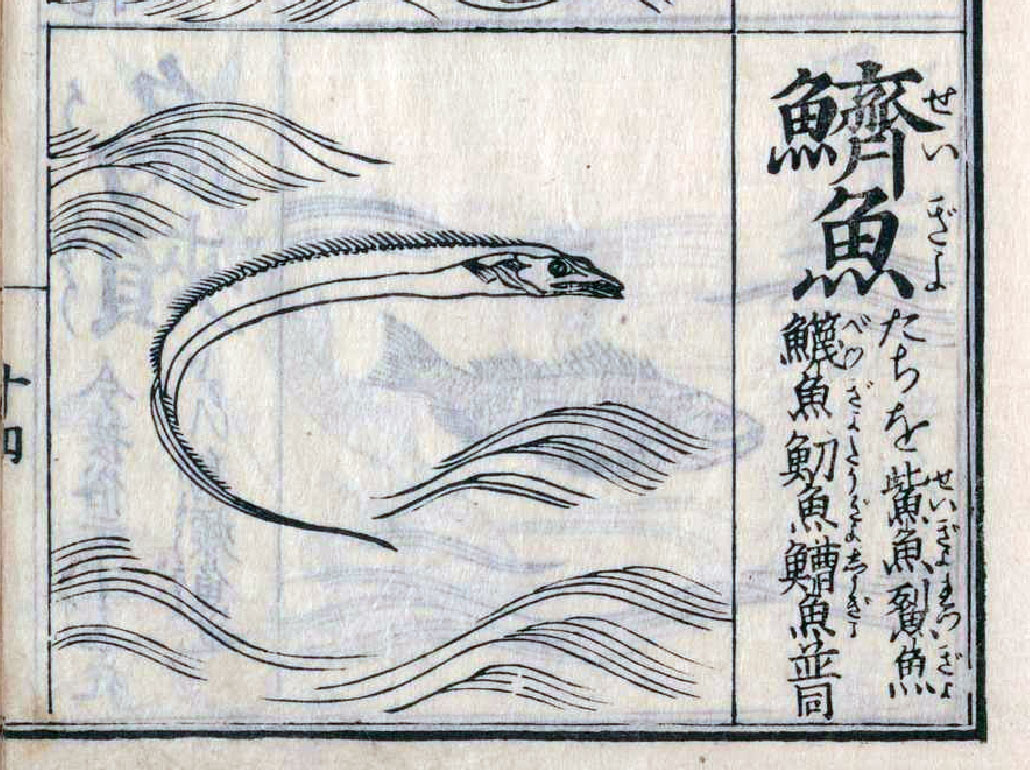 鱭魚
せいぎよ
たちを鮆魚鮤魚
せいぎよれつぎよ
鱴魚魛魚鰽魚並同
べつぎよたうぎよしうぎよ
十四